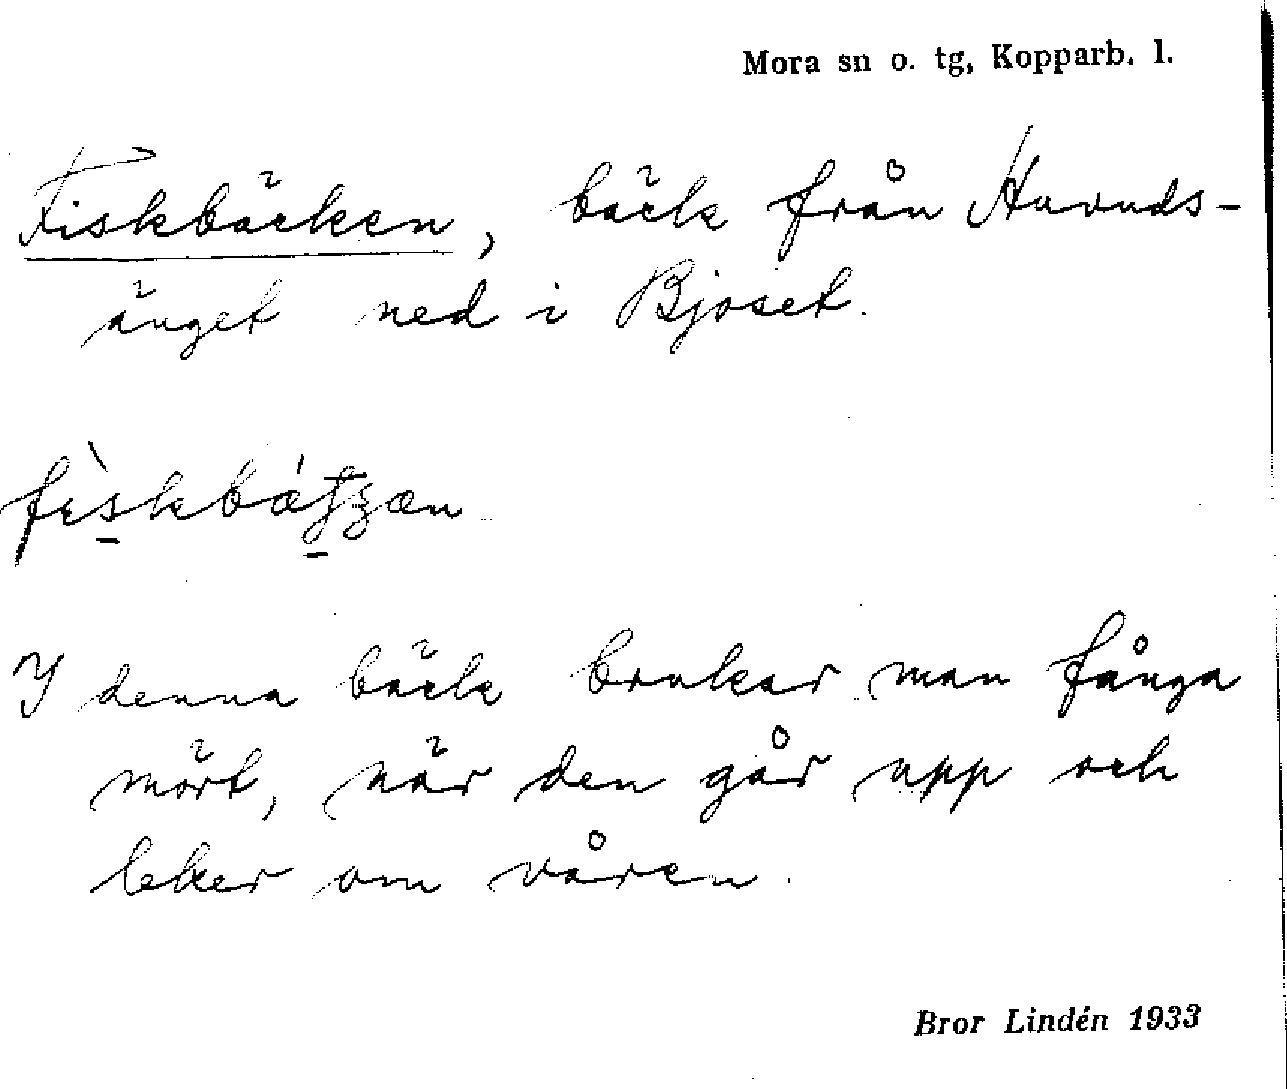 Mora sn o. tg, Kopparb. l.
Fiskbäcken, bäck från Huvuds-
änget ned i Bjoset.
I denna bäck brukar man fånga
mört, när den går upp och
leker om våren.
Bror Lindén 1933